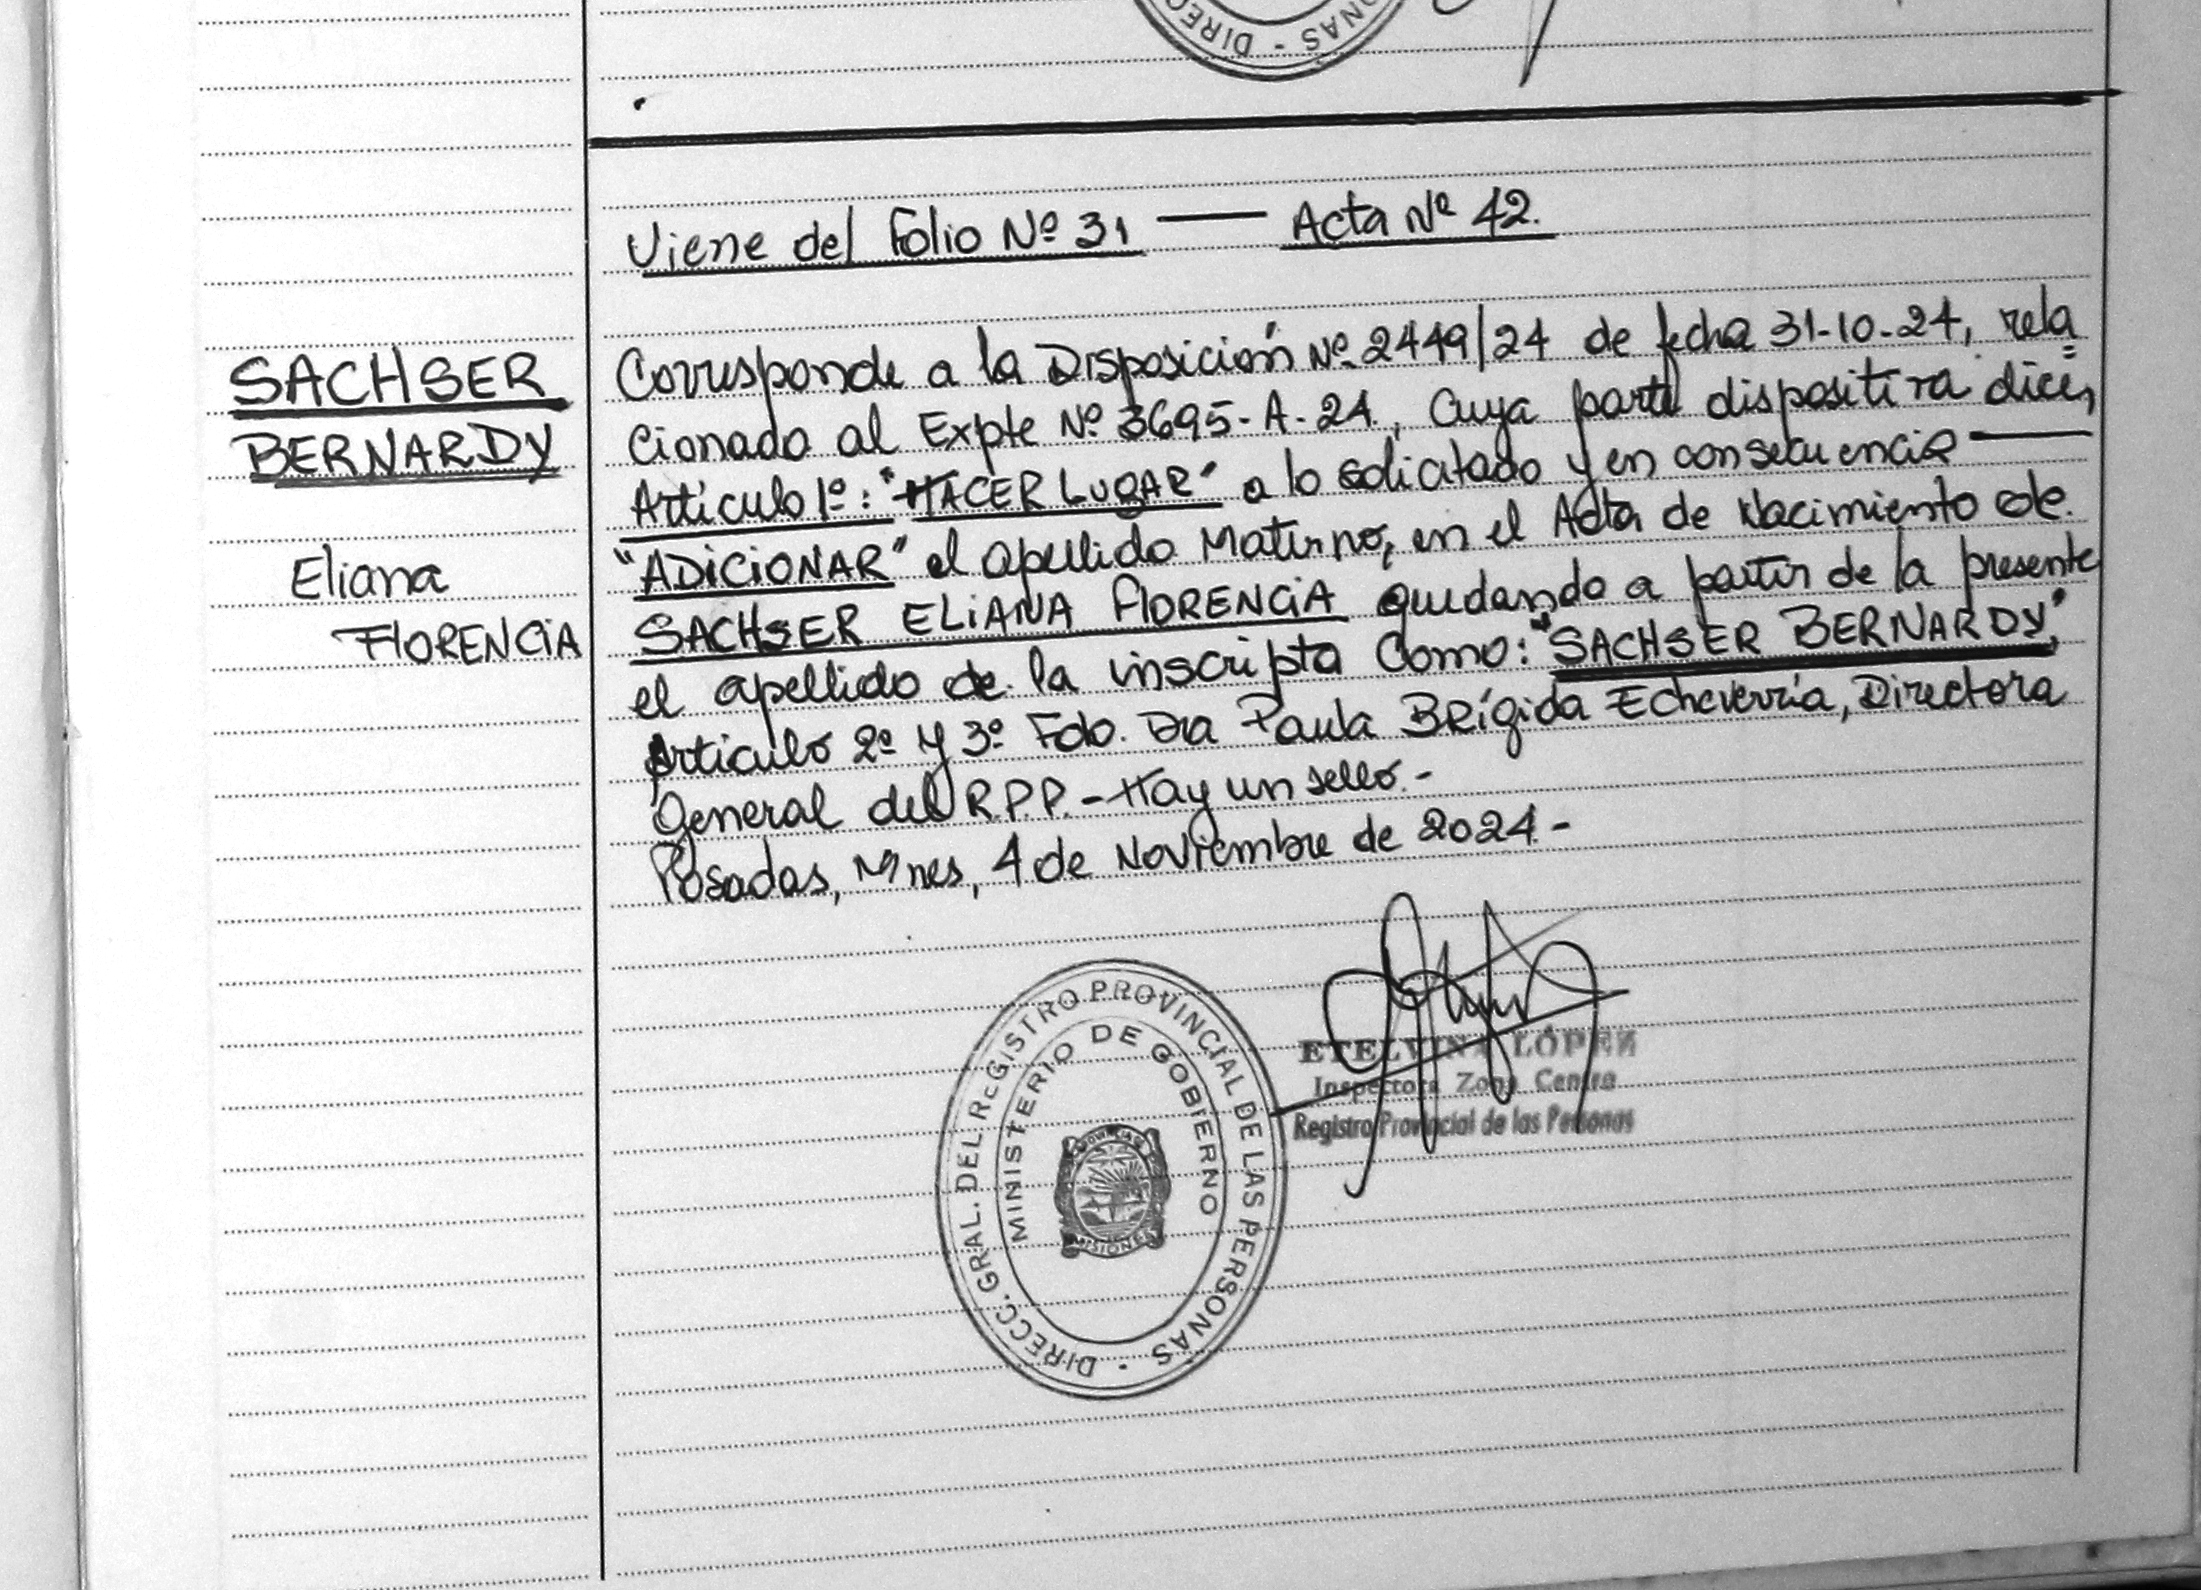 DIREC
ONAS -
Viene del Folio Nº 31 — Acta Nº 42.
SACHSER
BERNARDY
Eliana
FlORENCiA
Corresponde a la Disposición Nº 2449/24 de fecha 31-10-24, rela=
cionado al Expte Nº 3695-A-24, Cuya parte dispositiva dice,
Artículo 1º: "HACER LUGAR" a lo solicitado y en consecuencia —
"ADiCiONAR" el apellido Materno, en el Acta de Nacimiento de.
SACHSER ELiANA FlORENCiA quedando a partir de la presente
el apellido de la inscripta Como: "SACHSER BERNARDY",
Artículo 2º y 3º Fdo. Dra Paula Brígida Echeverría, Directora
General del R.P.P. - Hay un sello. -
Posadas, Mnes, 4 de Noviembre de 2024 -
DIRECC. GRAL. DEL REGISTRO PROVINCIAL DE LAS PERSONAS -
MINISTERIO DE GOBIERNO
PROVINCIA
MISIONES
ETELVINA LÓPEZ
Inspectora Zona Centro
Registro Provincial de las Personas